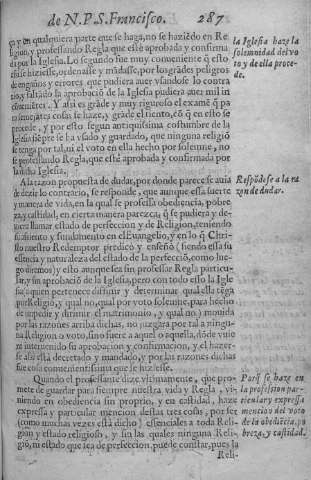 de N. P. S. Francisco. 287
y en qualquiera parte que se haga, no se haziẽdo en Re
ligion, y professando Regla que estè aprobada y confirma
da por la Iglesia. Lo segundo fue muy conueniente q̃ esto
se hiziesse, ordenasse y mãdasse, por los grãdes peligros
de engaños y errores que pudiera auer vsandose lo contra
y faltãdo la aprobaciõ de la Iglesia pudiera auer mil in
Y assi es grãde y muy riguroso el examẽ q̃ pa
semejãtes cosas se haze, y grãde el tiento, cõ q̃ en esto se
procede, y por esto segun antiquissima costumbre de la
Iglesia siẽpre se ha vsado y guardado, que ninguna religiõ
se tenga por tal, ni el voto en ella hecho por solenne, no
se professando Regla, que estè aprobada y confirmada por
la dicha Iglesia.
la Iglesia haze la
solemnidad del vo
to y de ella proce-
de.
A la razon propuesta de dudar, por donde parece se auia
de dezir lo contrario, se responde, que aunque essa suerte
y manera de vida, en la qual se professa obediencia, pobre
za, y castidad, en cierta manera parezca, q̃ se pudiera y de-
uiera llamar estado de perfeccion y de Religion, teniendo
su assiento y fundamento en el Euangelio, y en lo q̃ Chris
to nuestro Redemptor predicò y enseñò (siendo essa su
essencia y naturaleza del estado de la perfecciõ, como lue
go diremos) y esto aunque sea sin professar Regla particu-
lar, y sin aprobaciõ de la Iglesia, pero con todo esso la Igle
sia (à quien pertenece difinir y determinar qual ella tẽga
por Religiõ, y qual no, qual por voto solenne, para hecho
de impedir y dirimir el matrimonio, y qual no) mouida
por las razones arriba dichas, no juzgara por tal a ningu-
na Religion o voto, sino fuere a aquel o aquella, dõde vuie
re interuenido su aprobacion y confirmacion, y el hazer-
se assi està decretado y mandado, y por las razones dichas
fue cosa conuenientissima que se hiziesse.
Respõdese a la ra
zon de dudar.
Quando el professante dize vltimamente, que pro-
mete de guardar para siempre nuestra vida y Regla, vi-
uiendo en obediencia sin proprio, y en castidad, haze
expressa y particular mencion destas tres cosas, por ser
(como muchas vezes està dicho) essenciales a toda Reli
gion y estado religioso, y sin las quales ninguna Reli-
gio, ni estado que sea de perfeccion, puede constar, pues la
Reli-
Parq̃ se haze en
la profession par-
ticular y expressa
mencion del voto
de la obediẽcia, po
breza, y castidad.